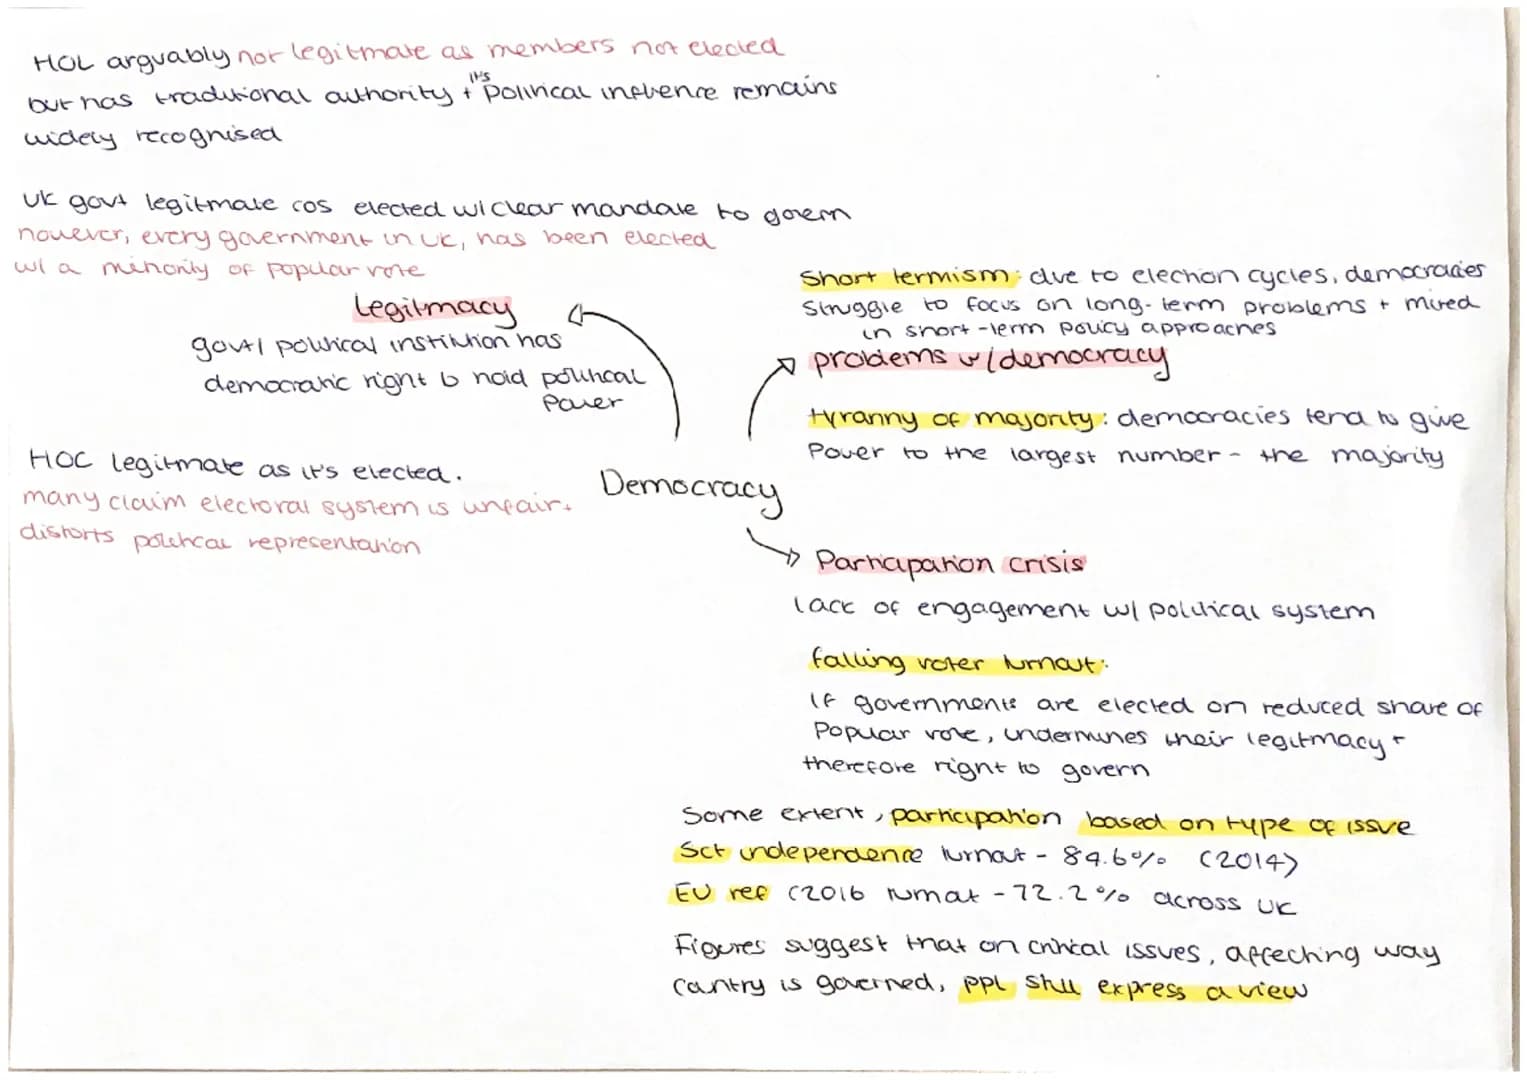 HOL arguably not legitmate as members not elected
but has traditional authority + it's political influence remains
widely recognised
UK govt legitmate cos elected w/ clear mandate to govern
however, every government in UK, has been elected
w/ a minority of popular vote
legitmacy
govt/ political institution has
democratic right to hold political
power
HOC legitmate as it's elected.
many claim electoral system is unfair +
distorts political representation
Democracy
Short termism: due to election cycles, democracies
struggle to focus on long-term problems + mired
in short-term policy approaches
problems w/ democracy
tyranny of majority: democracies tend to give
power to the largest number - the majority
Participation crisis
lack of engagement w/ political system
falling voter turnout:
If governments are elected on reduced share of
popular vote, undermines their legitmacy +
therefore right to govern
Some extent, participation based on type of issue
Sct independence turnout - 84.6% (2014)
EU ref (2016 turnout - 72.2% across UK
Figures suggest that on critical issues, affecting way
country is governed, ppl still express a view